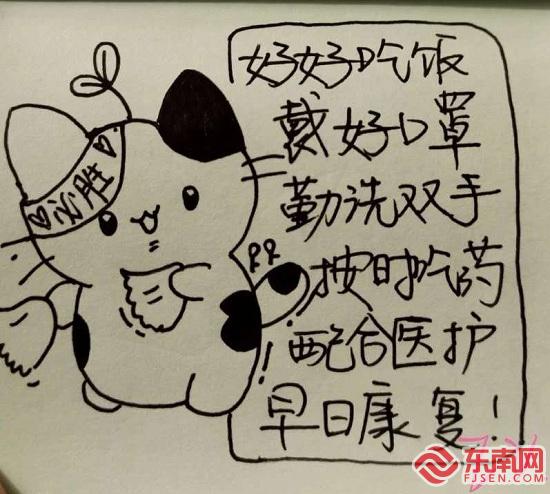 必胜
好好吃饭
戴好口罩
勤洗双手
按时吃药
配合医护
早日康复！
东南网
FJSEN.COM